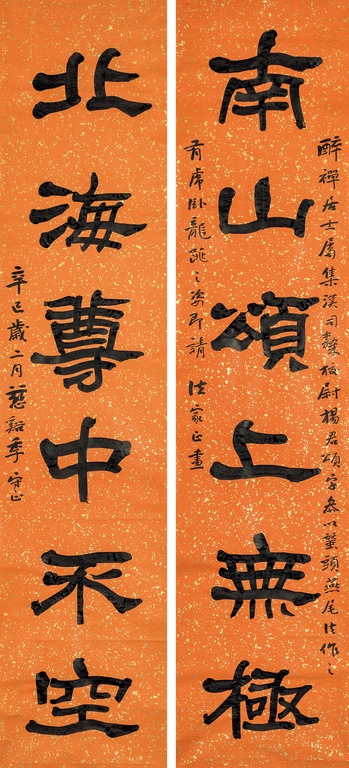 南山頌上無極
醉禪居士屬集漢司隸校尉楊君頌字參以蠶頭燕尾法作之
有虎臥龍跳之姿即請法家正畫
北海尊中不空
辛巳歲二月慈谿季守正